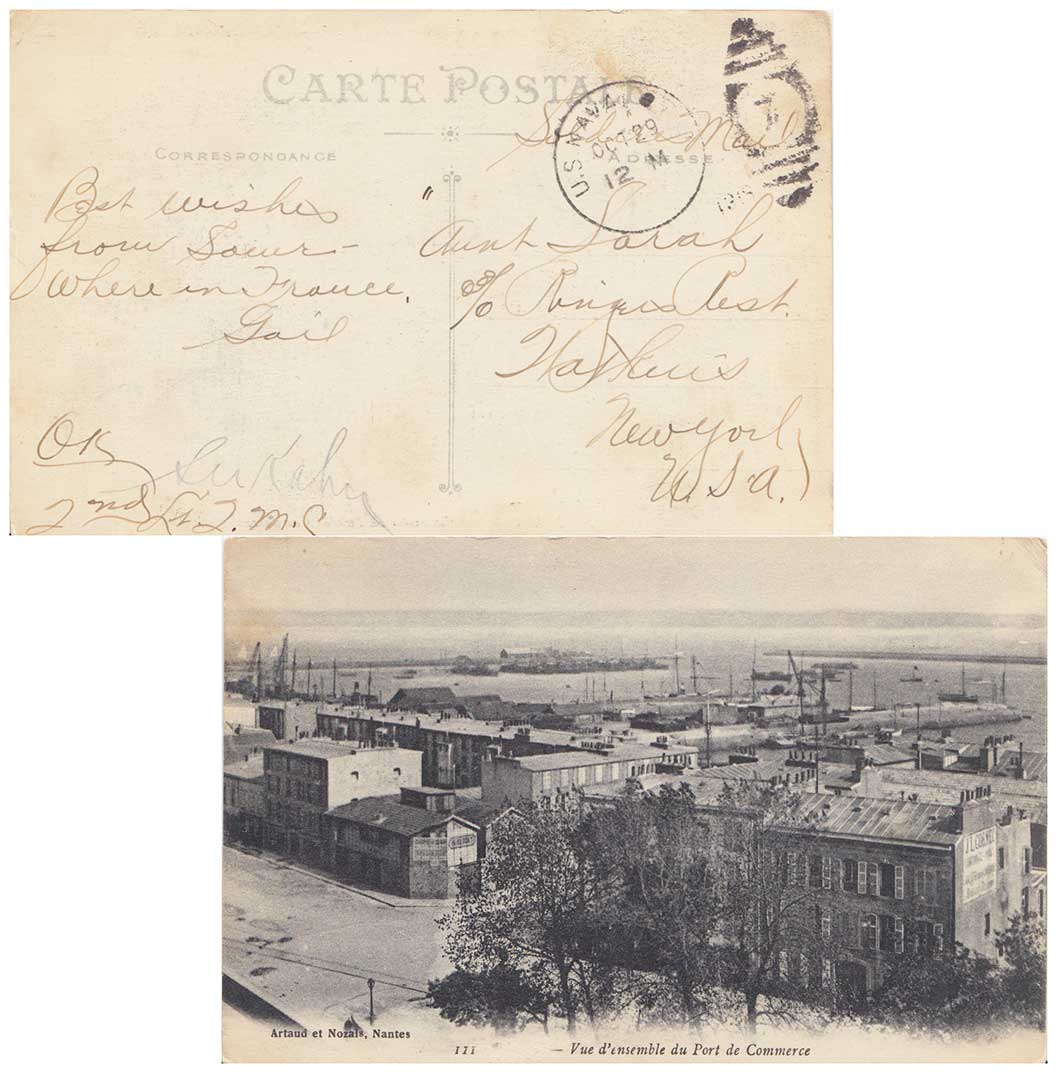 CARTE POSTALE
CORRESPONDANCE
ADRESSE
Soldier's Mail
U.S. NAVAL
OCT 29
12 M
Best wishes
from Some-
where in France.
Gail
"Aunt Sarah
c/o Rest.
New York
U.S.A.
OK
2nd Lt.
Artaud et Nozais, Nantes
111 — Vue d'ensemble du Port de Commerce